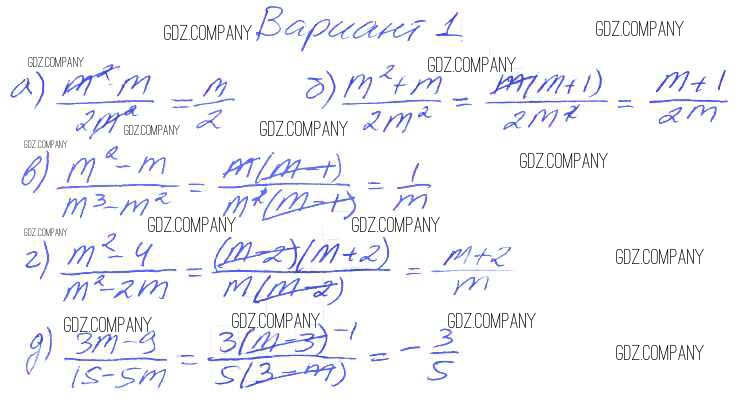 GDZ.COMPANY Вариант 1 GDZ.COMPANY
GDZ.COMPANY GDZ.COMPANY
а) m² · m / 2m² = m / 2 б) m² + m / 2m² = m(m+1) / 2m² = m+1 / 2m
GDZ.COMPANY GDZ.COMPANY
GDZ.COMPANY GDZ.COMPANY
в) m² - m / m³ - m² = m(m-1) / m²(m-1) = 1 / m
GDZ.COMPANY GDZ.COMPANY GDZ.COMPANY
г) m² - 4 / m² - 2m = (m-2)(m+2) / m(m-2) = m+2 / m GDZ.COMPANY
GDZ.COMPANY GDZ.COMPANY GDZ.COMPANY
д) 3m - 9 / 15 - 5m = 3(m-3)⁻¹ / 5(3-m) = - 3 / 5 GDZ.COMPANY